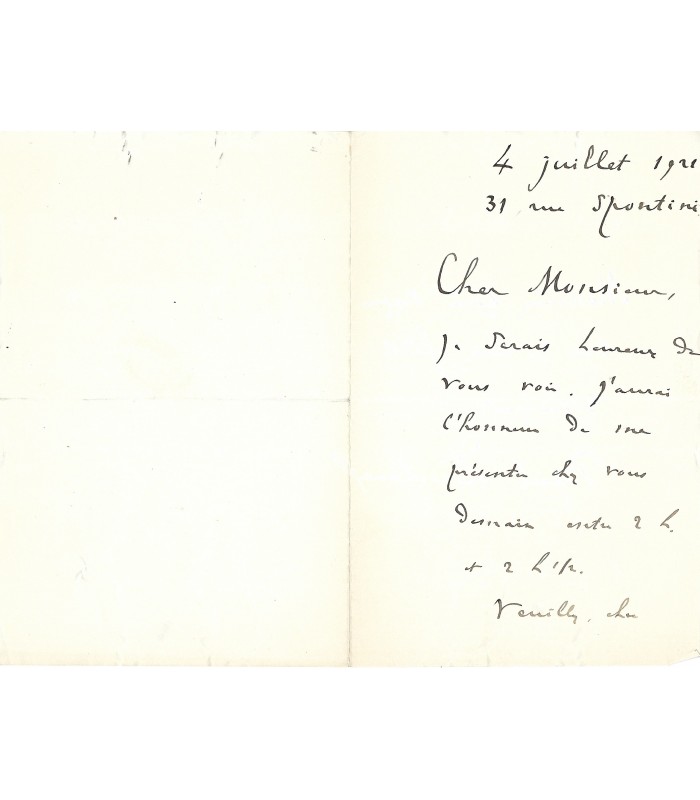 4 juillet 1921
31 rue Spontini
Cher Monsieur,
Je serais heureux de
vous voir. J'aurai
l'honneur de me
présenter chez vous
demain entre 2 h.
et 2 h 1/2.
Veuillez, cher